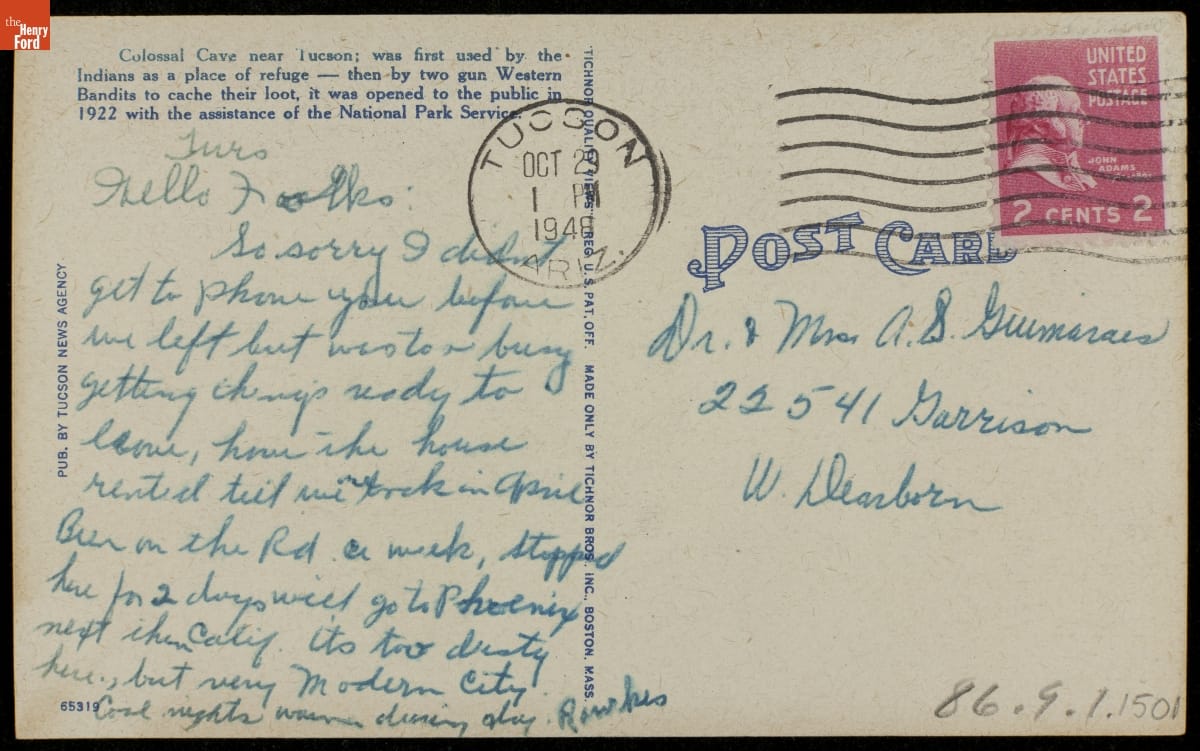 the
Henry
Ford
Colossal Cave near Tucson; was first used by the
Indians as a place of refuge — then by two gun Western
Bandits to cache their loot, it was opened to the public in
1922 with the assistance of the National Park Service.
Turs
Hello Folks:
So sorry I didn't
get to phone you before
we left but was to busy
getting things ready to
leave, have the house
rented till we back in April
Been on the Rd. a week, stopped
here for 2 days will go to Phoenix
next then Calif. its too dusty
here., but very Modern City.
Cool nights warm during day.
PUB. BY TUCSON NEWS AGENCY
65319
TICHNOR QUALITY VIEWS REG. U.S. PAT. OFF. MADE ONLY BY TICHNOR BROS. INC., BOSTON, MASS.
TUCSON
OCT 2
1 PM
1948
ARIZ.
UNITED
STATES
POSTAGE
JOHN
ADAMS
2 CENTS 2
POST CARD
Dr. & Mrs A. S. Guimaraes
22541 Garrison
W. Dearborn
86.9.1.1501